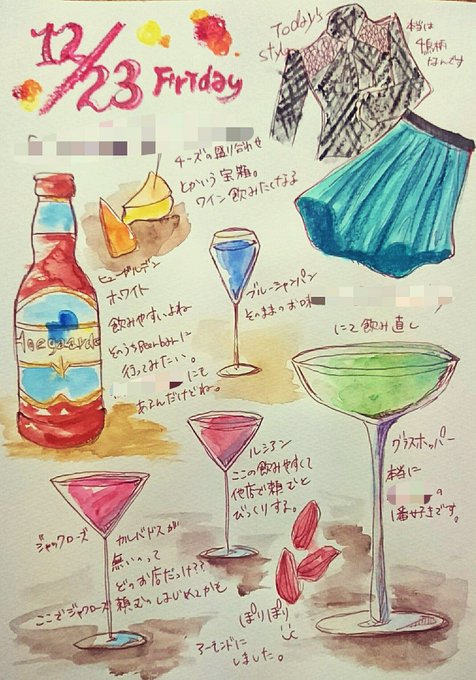 12/23 Friday
Today's
style
本当は
4島柄
なんです
チーズの盛り合わせ
とかいう宝箱。
ワイン飲みたくなる
ヒューガルデン
ホワイト
飲みやすいよね
そのうちBeerbarに
行ってみたい。
にも
あるんだけどね。
Hoegaarde
ブルーシャンパン
そのままのお味
にて飲み直し
グラスホッパー
本当に
の
1番好きです。
ルシアン
ここの飲みやすくて
他店で頼むと
びっくりする。
ジャックローズ
カルバドスが
無いのって
どのお店だっけ??
ここでジャックローズ頼むのはじめてかも
ぽりぽり
アーモンドに
しました。